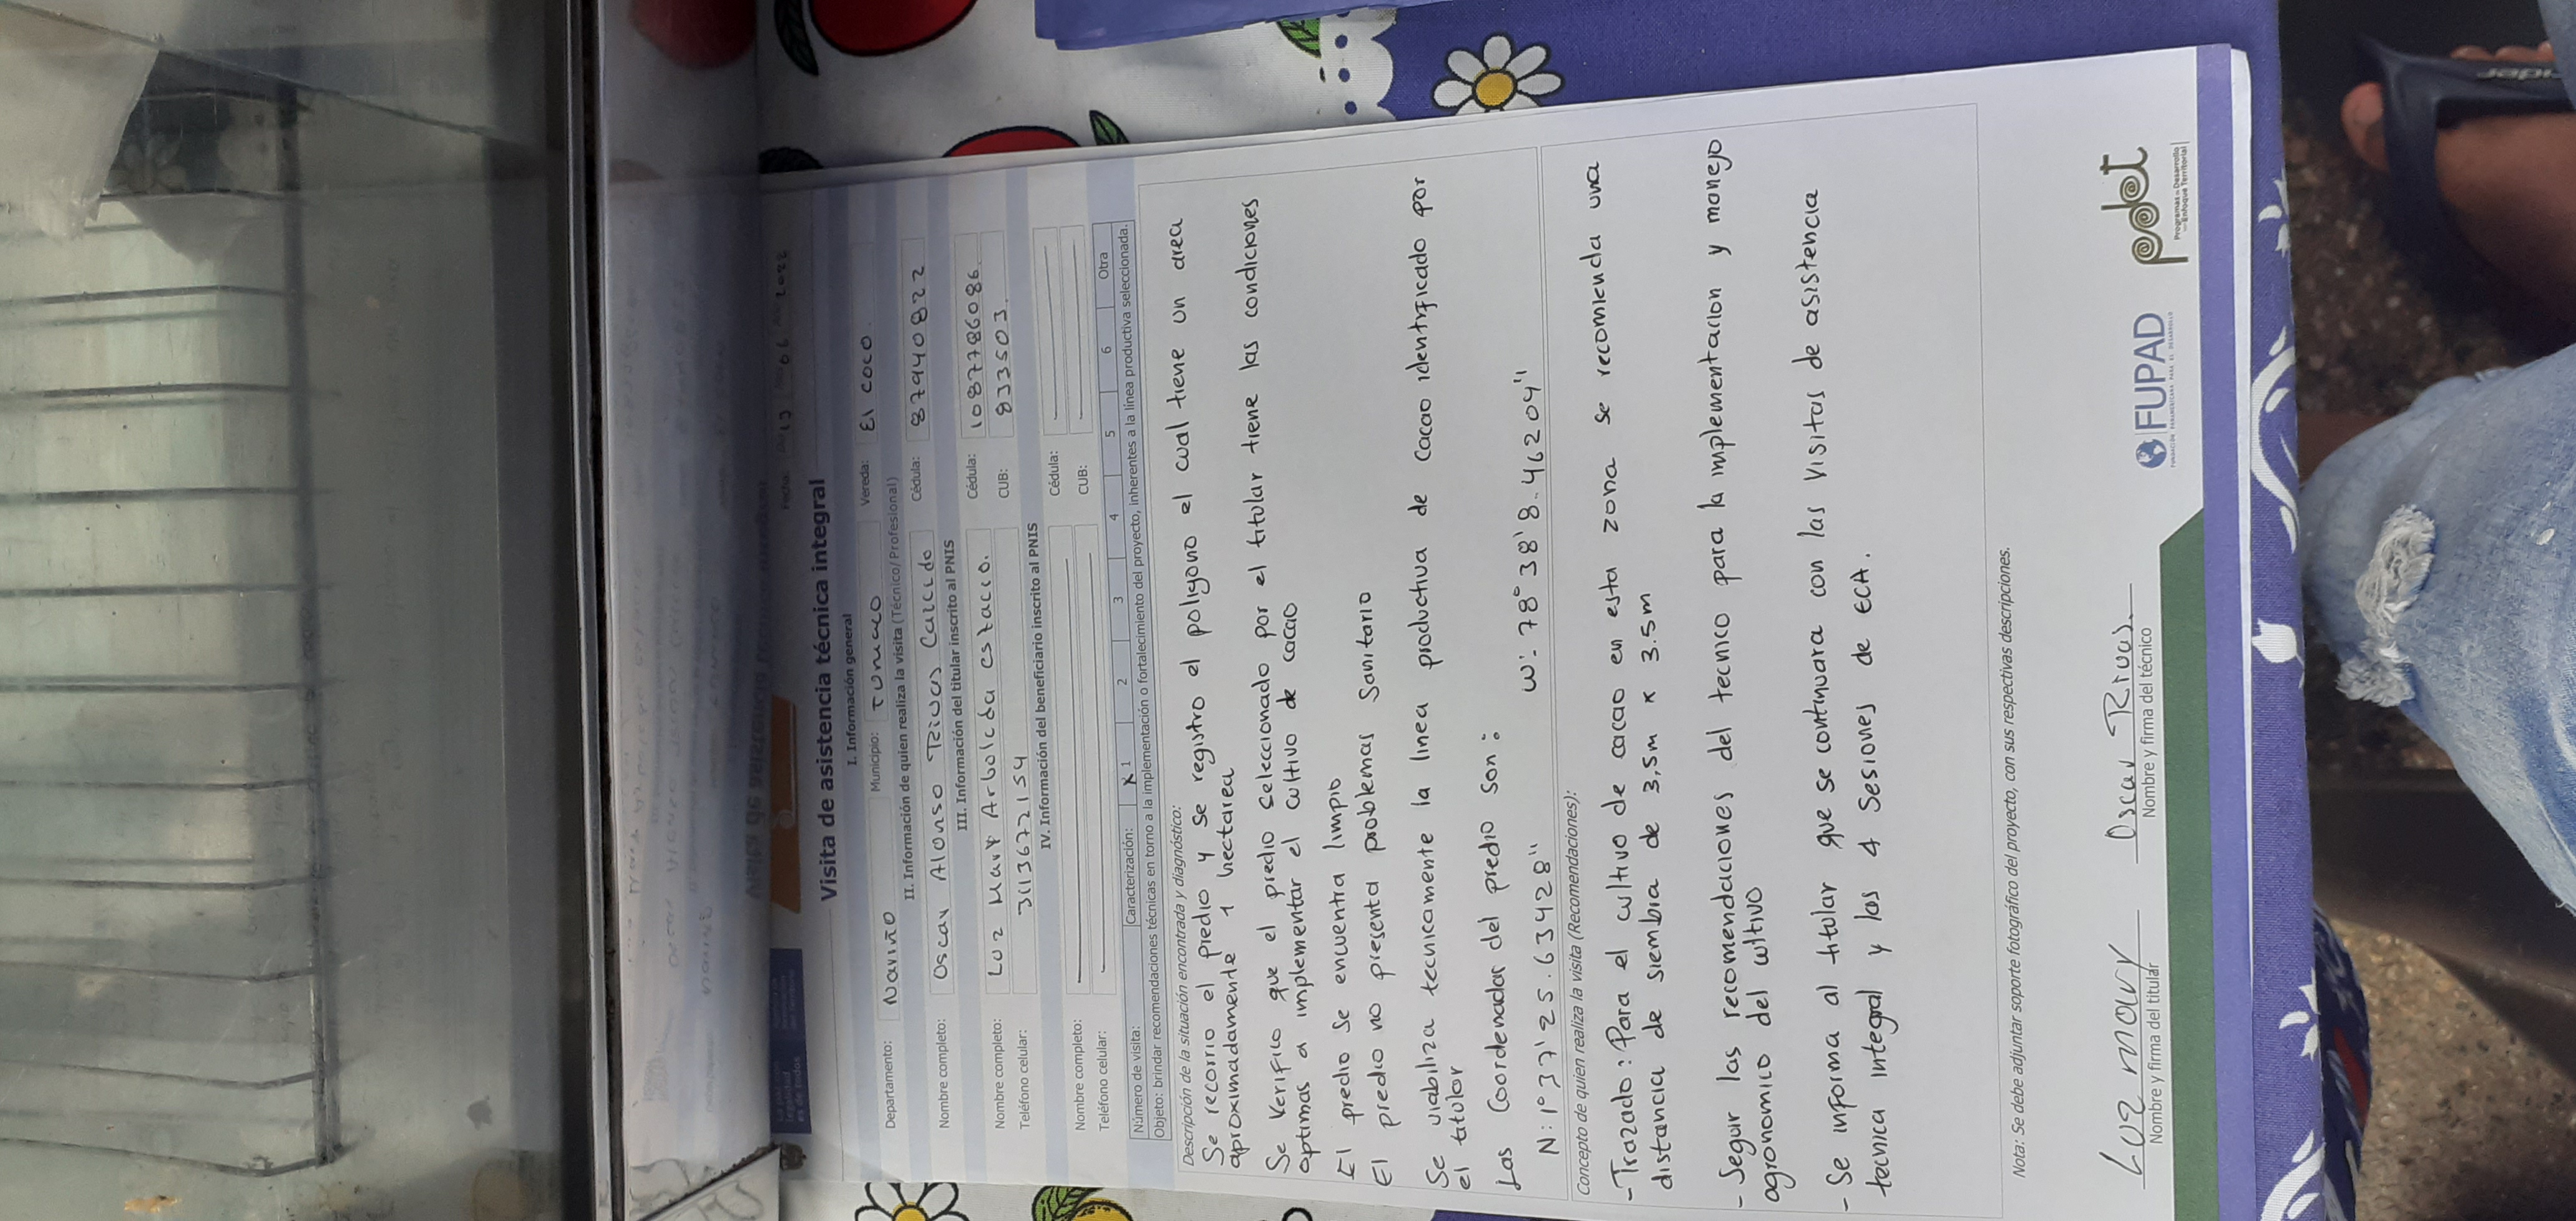 Visita de asistencia técnica integral
I. Información general
Departamento: Nariño Municipio: Tumaco Vereda: El coco.
II. Información de quien realiza la visita (Técnico/ Profesional)
Nombre completo: Oscar Alonso Rivas Caicedo Cédula: 87940822
III. Información del titular inscrito al PNIS
Nombre completo: Luz Mary Arboleda estacio. Cédula: 1087786086
Teléfono celular: 3113672154 CUB: 833503.
IV. Información del beneficiario inscrito al PNIS
Nombre completo: Cédula:
Teléfono celular: CUB:
Número de visita: Caracterización: X 1 2 3 4 5 6 Otra
Objeto: brindar recomendaciones técnicas en torno a la implementación o fortalecimiento del proyecto, inherentes a la línea productiva seleccionada.
Descripción de la situación encontrada y diagnóstico:
Se recorrio el predio y se registro el poligono el cual tiene un area
aproximadamente 1 hectarea
Se Verifico que el predio seleccionado por el titular tiene las condiciones
optimas a implementar el cultivo de cacao
El predio se encuentra limpio
El predio no presenta problemas Sanitario
Se viabiliza tecnicamente la linea productiva de cacao identificado por
el titular
Las Coordenadas del predio son:
N: 1° 37' 25.63428" W: 78° 38' 8.46204"
Concepto de quien realiza la visita (Recomendaciones):
- Trazado: Para el cultivo de cacao en esta zona se recomienda una
distancia de siembra de 3,5m x 3.5m
- Seguir las recomendaciones del tecnico para la implementacion y manejo
agronomico del cultivo
- Se informa al titular que se continuara con las visitas de asistencia
tecnica integral y las 4 sesiones de ECA.
Nota: Se debe adjuntar soporte fotográfico del proyecto, con sus respectivas descripciones.
Luz mary Oscar Rivas.
Nombre y firma del titular Nombre y firma del técnico
FUPAD
pdet
Programas de Desarrollo
con Enfoque Territorial